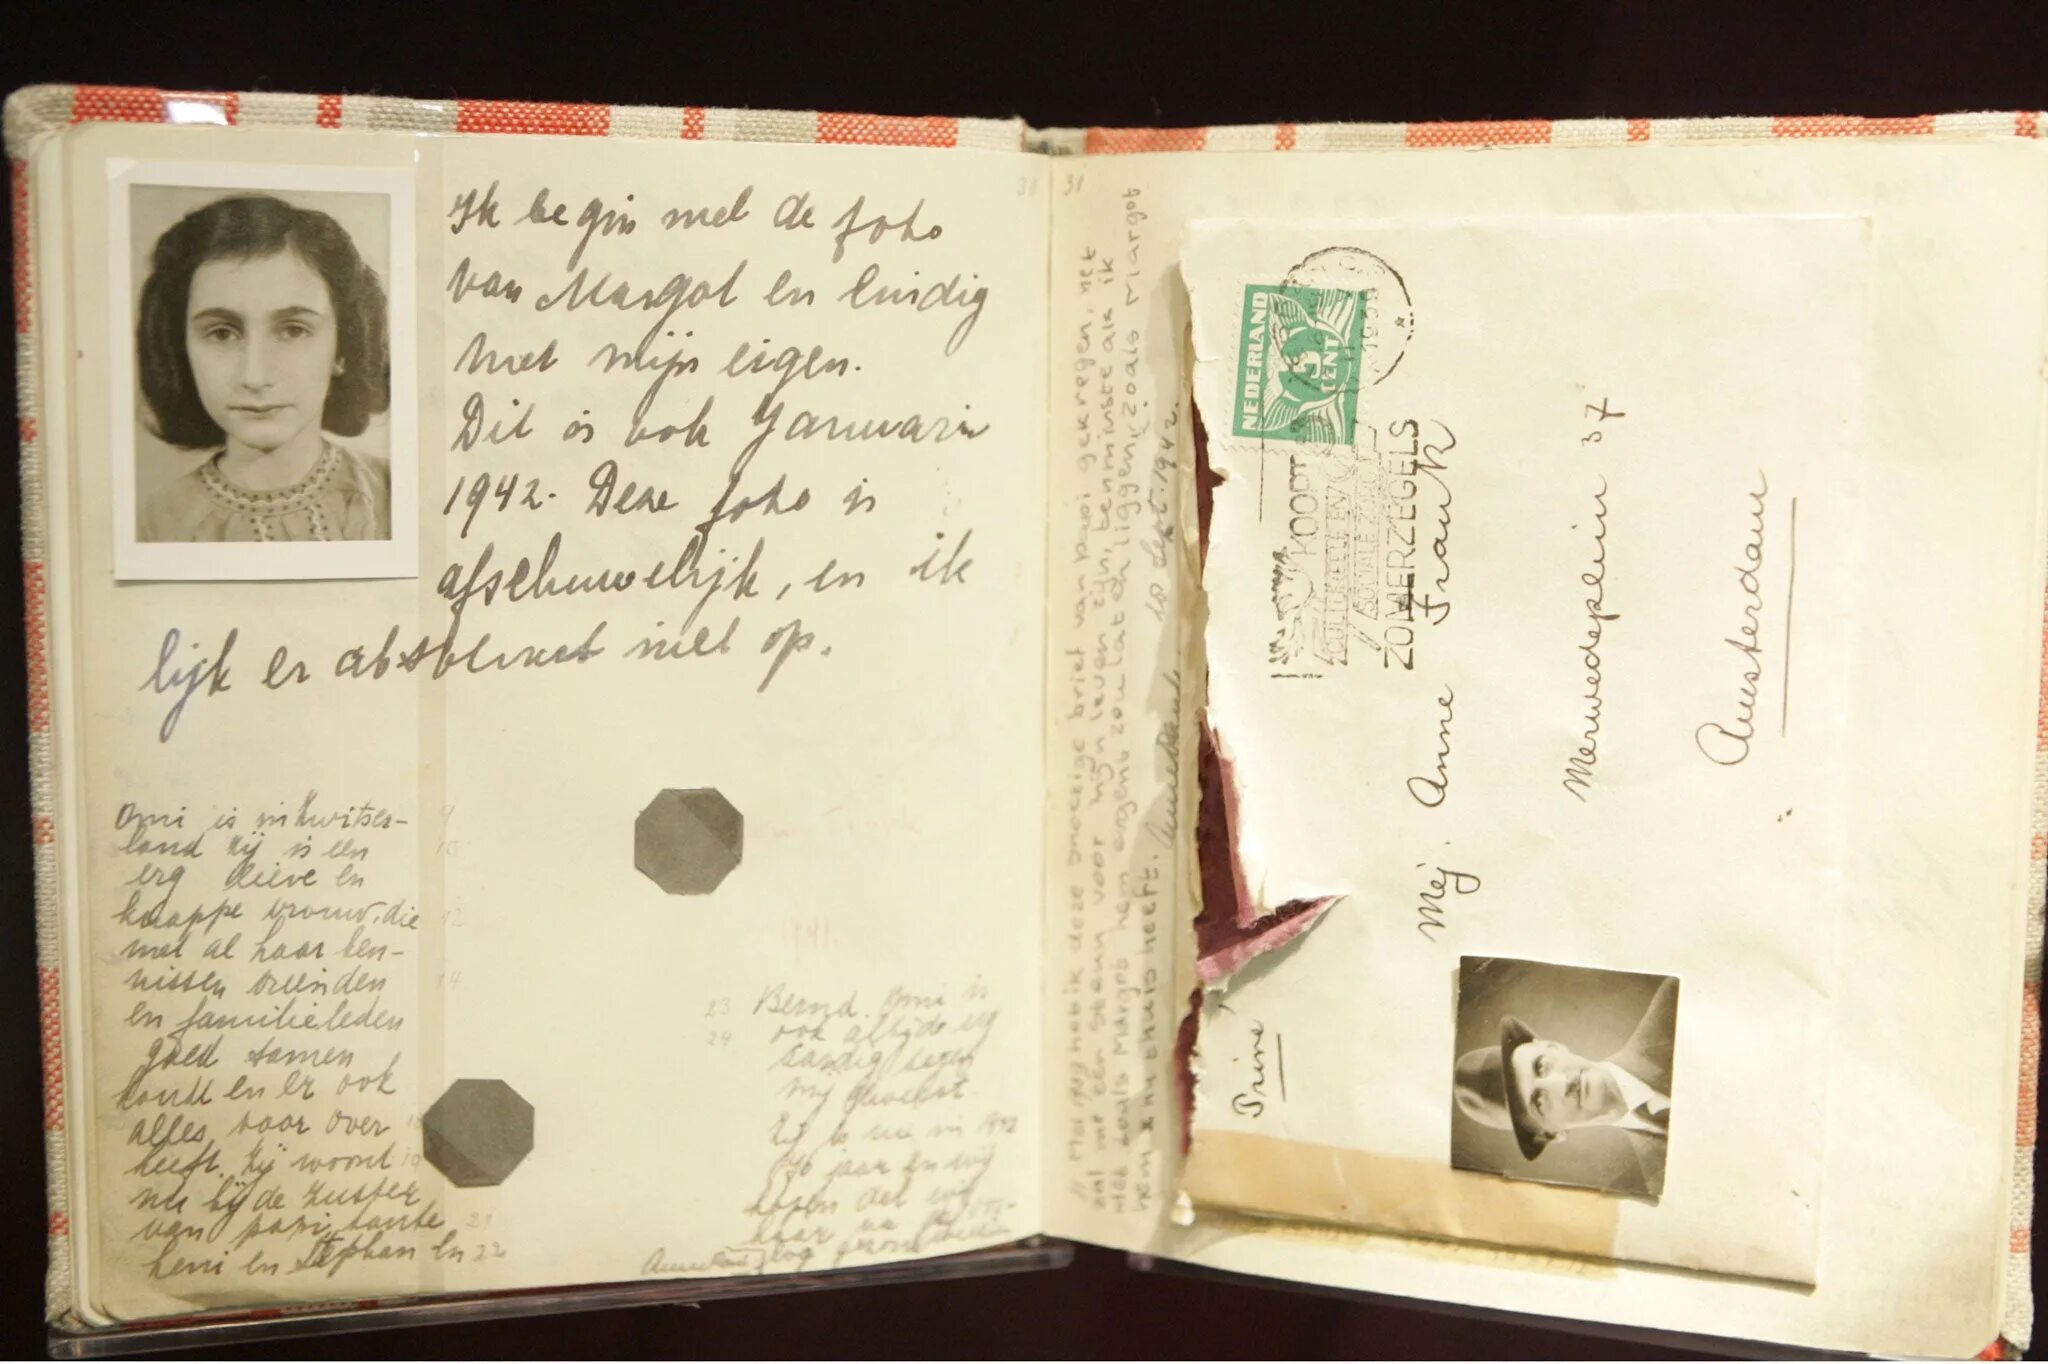 Ik begin met de foto
van Margot en eindig
met mijn eigen.
Dit is ook Januari
1942. Deze foto is
afschuwelijk, en ik
lijk er absoluut niet op.
Omi is in Zwitser-
land Zij is een
erg lieve en
knappe vrouw, die
met al haar ken-
nissen vrienden
en familieleden
goed samen
houdt en er ook
alles voor over
heeft. Zij woont
nu bij de zuster
van papi, tante
heni en Stephan en
Bernd. Omi is
ook altijd erg
aardig tegen
mij geweest.
Zij is nu in 1942
jaar en wij
hopen dat wij
haar na de oor-
log
31
31
9
10
12
14
18
19
21
22
23
24
heb ik deze snoezige brief van papi gekregen, het
zal me een steun voor mijn leven zijn, tenminste als ik
hem zoals Margot hem ergens zou laten liggen, zoals Margot
hem in huis heeft.
10 Sept. 1942.
NEDERLAND
CENT
1939
KOOPT
CULTUREELE EN
SOCIALE
ZOMERZEGELS
Mej. Anne Frank
Merwedeplein 37
Amsterdam
Prive